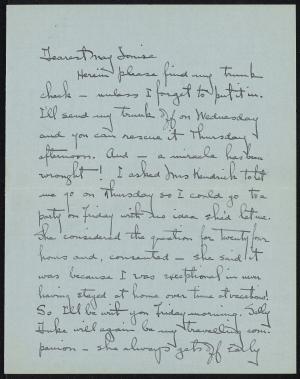 Dearest May Louise
Herein please find my trunk
check — unless I forget to put it in.
I'll send my trunk off on Wednesday
and you can rescue it Thursday
afternoon. And — a miracle has been
wrought! I asked Mrs Kendrick to let
me go on Thursday so I could go to a
party on Friday with no idea she'd let me.
She considered the question for twenty four
hours and, consented — she said it
was because I was exceptional in never
having stayed at home over time at vacations!
So I'll be with you Friday morning.
Duke will again be my travelling com-
panion — she always gets off early